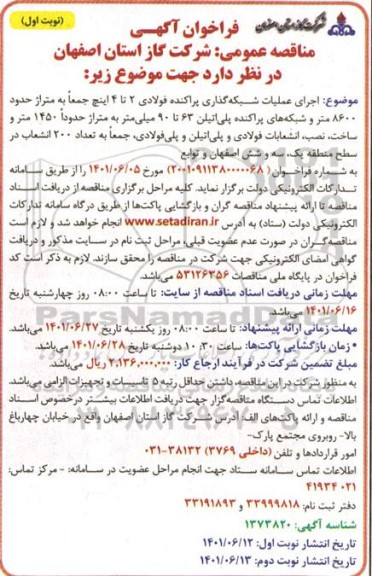 شرکت گاز استان اصفهان
(نوبت اول)
فراخوان آگهـی
مناقصه عمومی: شرکت گاز استان اصفهان
در نظر دارد جهت موضوع زیر:
موضوع: اجرای عملیات شبکه‌گذاری پراکنده فولادی ۲ تا ۴ اینچ جمعاً به متراژ حدود
۸۶۰۰ متر و شبکه‌های پراکنده پلی‌اتیلن ۶۳ تا ۹۰ میلی‌متر به متراژ حدوداً ۱۴۵۰ متر و
ساخت، نصب، انشعابات فولادی و پلی‌اتیلن و پلی‌فولادی، جمعاً به تعداد ۲۰۰ انشعاب در
سطح منطقه یک، سه و شش اصفهان و توابع
به شماره فراخـوان (۲۰۰۱۰۹۱۱۳۸۰۰۰۰۶۸) مورخ ۱۴۰۱/۰۶/۰۵ را از طریق سامانه
تدارکات الکترونیکی دولت برگزار نماید. کلیه مراحل برگزاری مناقصه از دریافت اسناد
مناقصه تا ارائه پیشنهاد مناقصه گران و بازگشایی پاکت‌ها از طریق درگاه سامانه تدارکات
الکترونیکی دولت (ستاد) به آدرس www.setadiran.ir انجام خواهد شد و لازم است
مناقصه‌گـران در صورت عدم عضویت قبلی، مراحل ثبت نام در سایت مذکور و دریافت
گواهی امضای الکترونیکی جهت شرکت در مناقصه را محقق سازند. لازم به ذکر است کد
فراخوان در پایگاه ملی مناقصات ۵۳۱۲۶۳۵۶ می‌باشد.
مهلت زمانی دریافت اسناد مناقصه از سایت: تا ساعت ۰۸:۰۰ روز چهارشنبه تاریخ
۱۴۰۱/۰۶/۱۶ می‌باشد.
مهلت زمانی ارائه پیشنهاد: تا ساعت ۰۸:۰۰ روز یکشنبه تاریخ ۱۴۰۱/۰۶/۲۷ می‌باشد.
• زمان بازگشایی پاکت‌ها: ساعت ۱۰:۳۰ دوشنبه تاریخ ۱۴۰۱/۰۶/۲۸ می‌باشد.
مبلغ تضمین شرکت در فرآیند ارجاع کار: ۲,۱۳۶,۰۰۰,۰۰۰ ریال می‌باشد.
به منظور شرکت در این مناقصه، داشتن حداقل رتبه ۵ تاسیسات و تجهیزات الزامی می‌باشد.
اطلاعات تماس دستگاه مناقصه‌گزار جهت دریافت اطلاعات بیشتر درخصوص اسناد
مناقصه و ارائه پاکت‌های الف: آدرس شرکت گاز استان اصفهان واقع در خیابان چهارباغ
بالا- روبروی مجتمع پارک-
امور قراردادها و تلفن (داخلی ۳۷۶۹) ۳۸۱۳۲-۰۳۱
اطلاعات تماس سامانه ستاد جهت انجام مراحل عضویت در سامانه: - مرکز تماس:
۰۲۱ ۴۱۹۳۴
دفتر ثبت نام: ۳۳۹۹۹۸۱۸ و ۳۳۱۹۱۸۹۳
شناسه آگهی: ۱۳۷۳۸۲۰
تاریخ انتشار نوبت اول: ۱۴۰۱/۰۶/۱۲
تاریخ انتشار نوبت دوم: ۱۴۰۱/۰۶/۱۳